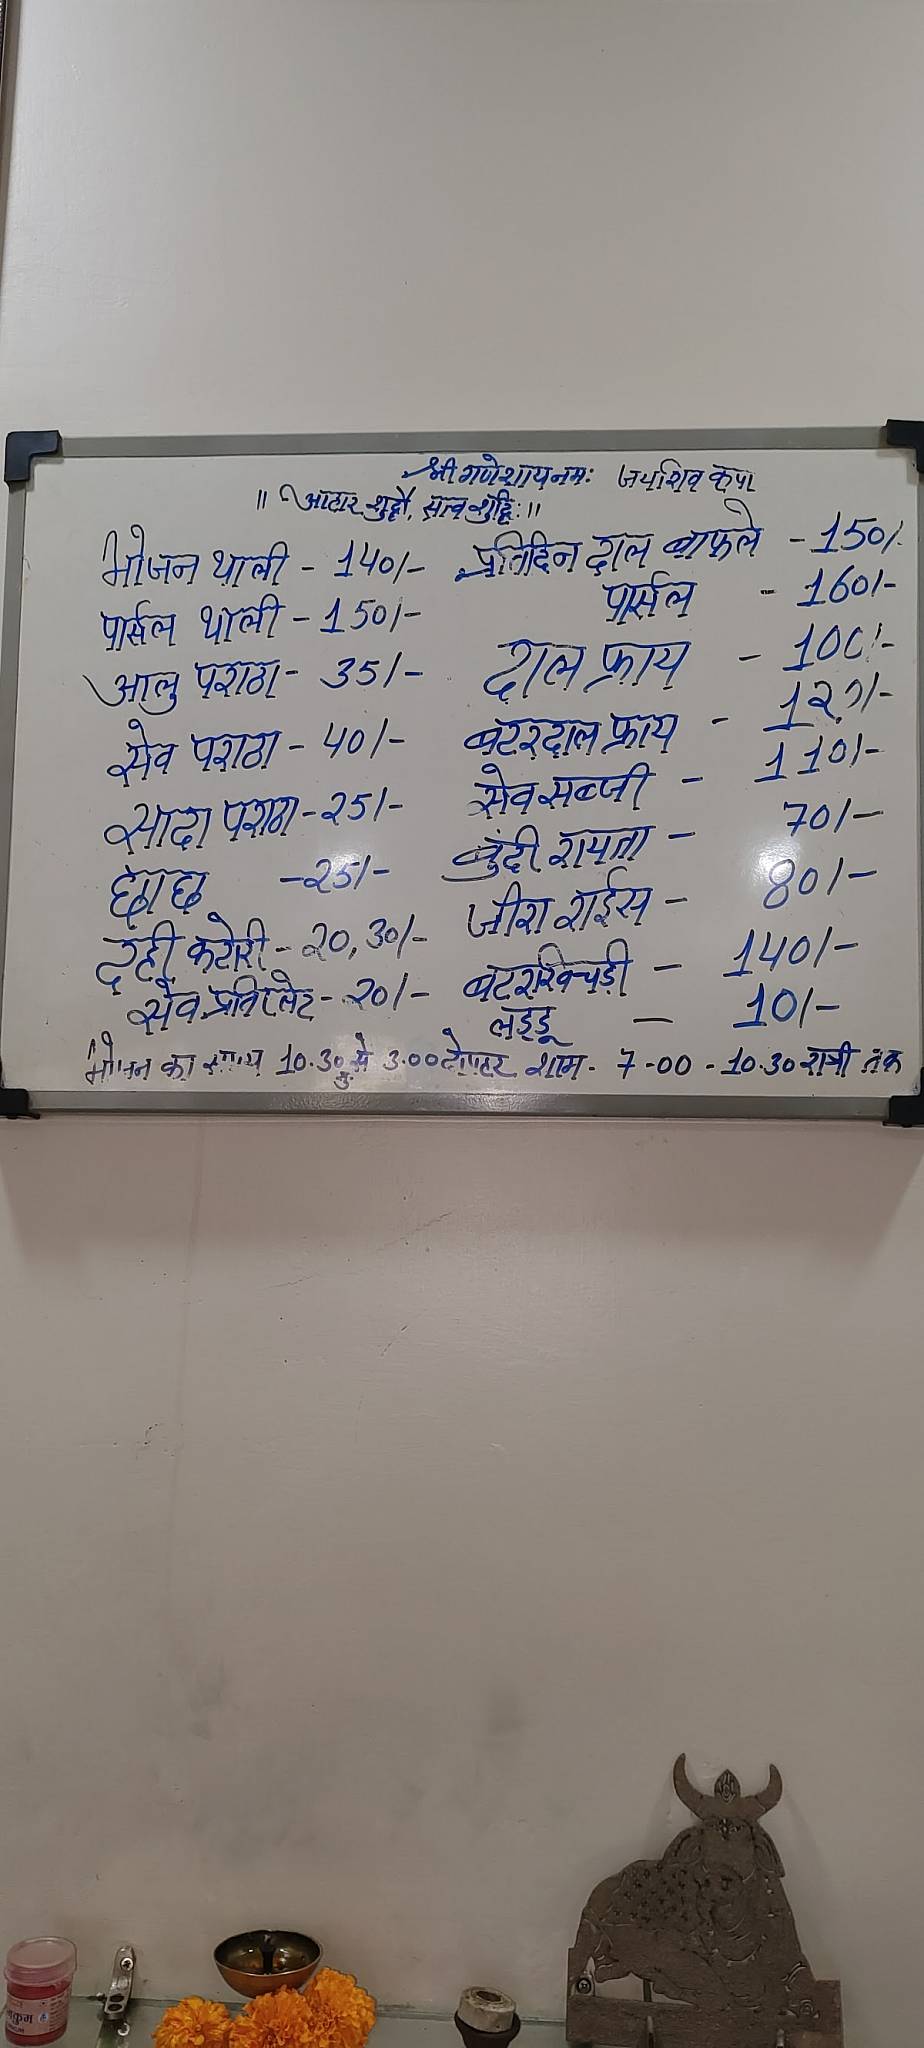 श्री गणेशाय नमः जय शिव कृपा
॥ आहार शुद्धौ, सत्व शुद्धिः ॥
भोजन थाली - 140/-
पार्सल थाली - 150/-
आलु पराठा - 35/-
सेव पराठा - 40/-
सादा पराठा - 25/-
छाछ - 25/-
दही कटोरी - 20,30/-
सेव प्रति प्लेट - 20/-
प्रतिदिन दाल बाफले - 150/-
पार्सल - 160/-
दाल फ्राय - 100/-
बटर दाल फ्राय - 120/-
सेव सब्जी - 110/-
बुंदी रायता - 70/-
जीरा राईस - 80/-
बटर खिचड़ी - 140/-
लड्डू - 10/-
भोजन का समय 10.30 सु से 3.00 दोपहर शाम - 7-00 - 10.30 रात्री तक